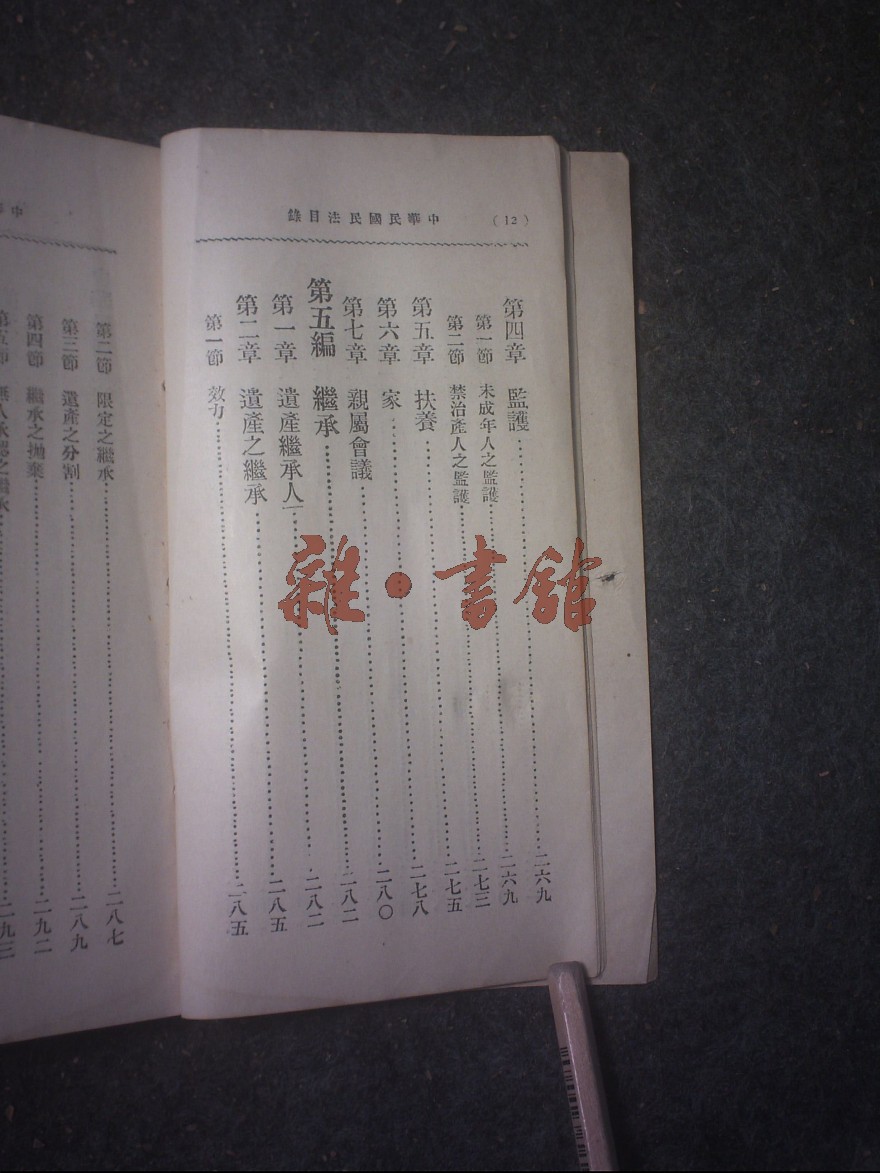 (12) 中華民國民法目錄
第四章 監護……二六九
第一節 未成年人之監護……二六九
第二節 禁治產人之監護……二七三
第五章 扶養……二七五
第六章 家……二七八
第七章 親屬會議……二八〇
第五編 繼承……二八二
第一章 遺產繼承人……二八二
第二章 遺產之繼承……二八五
第一節 效力……二八五
中
第二節 限定之繼承……二八七
第三節 遺產之分割……二八九
第四節 繼承之拋棄……二九二
第五節 無人承認之繼承……二九三
雜·書館